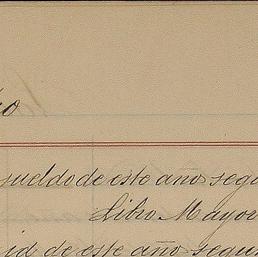 sueldo de este año segu
Libro Mayor
id de este año segun